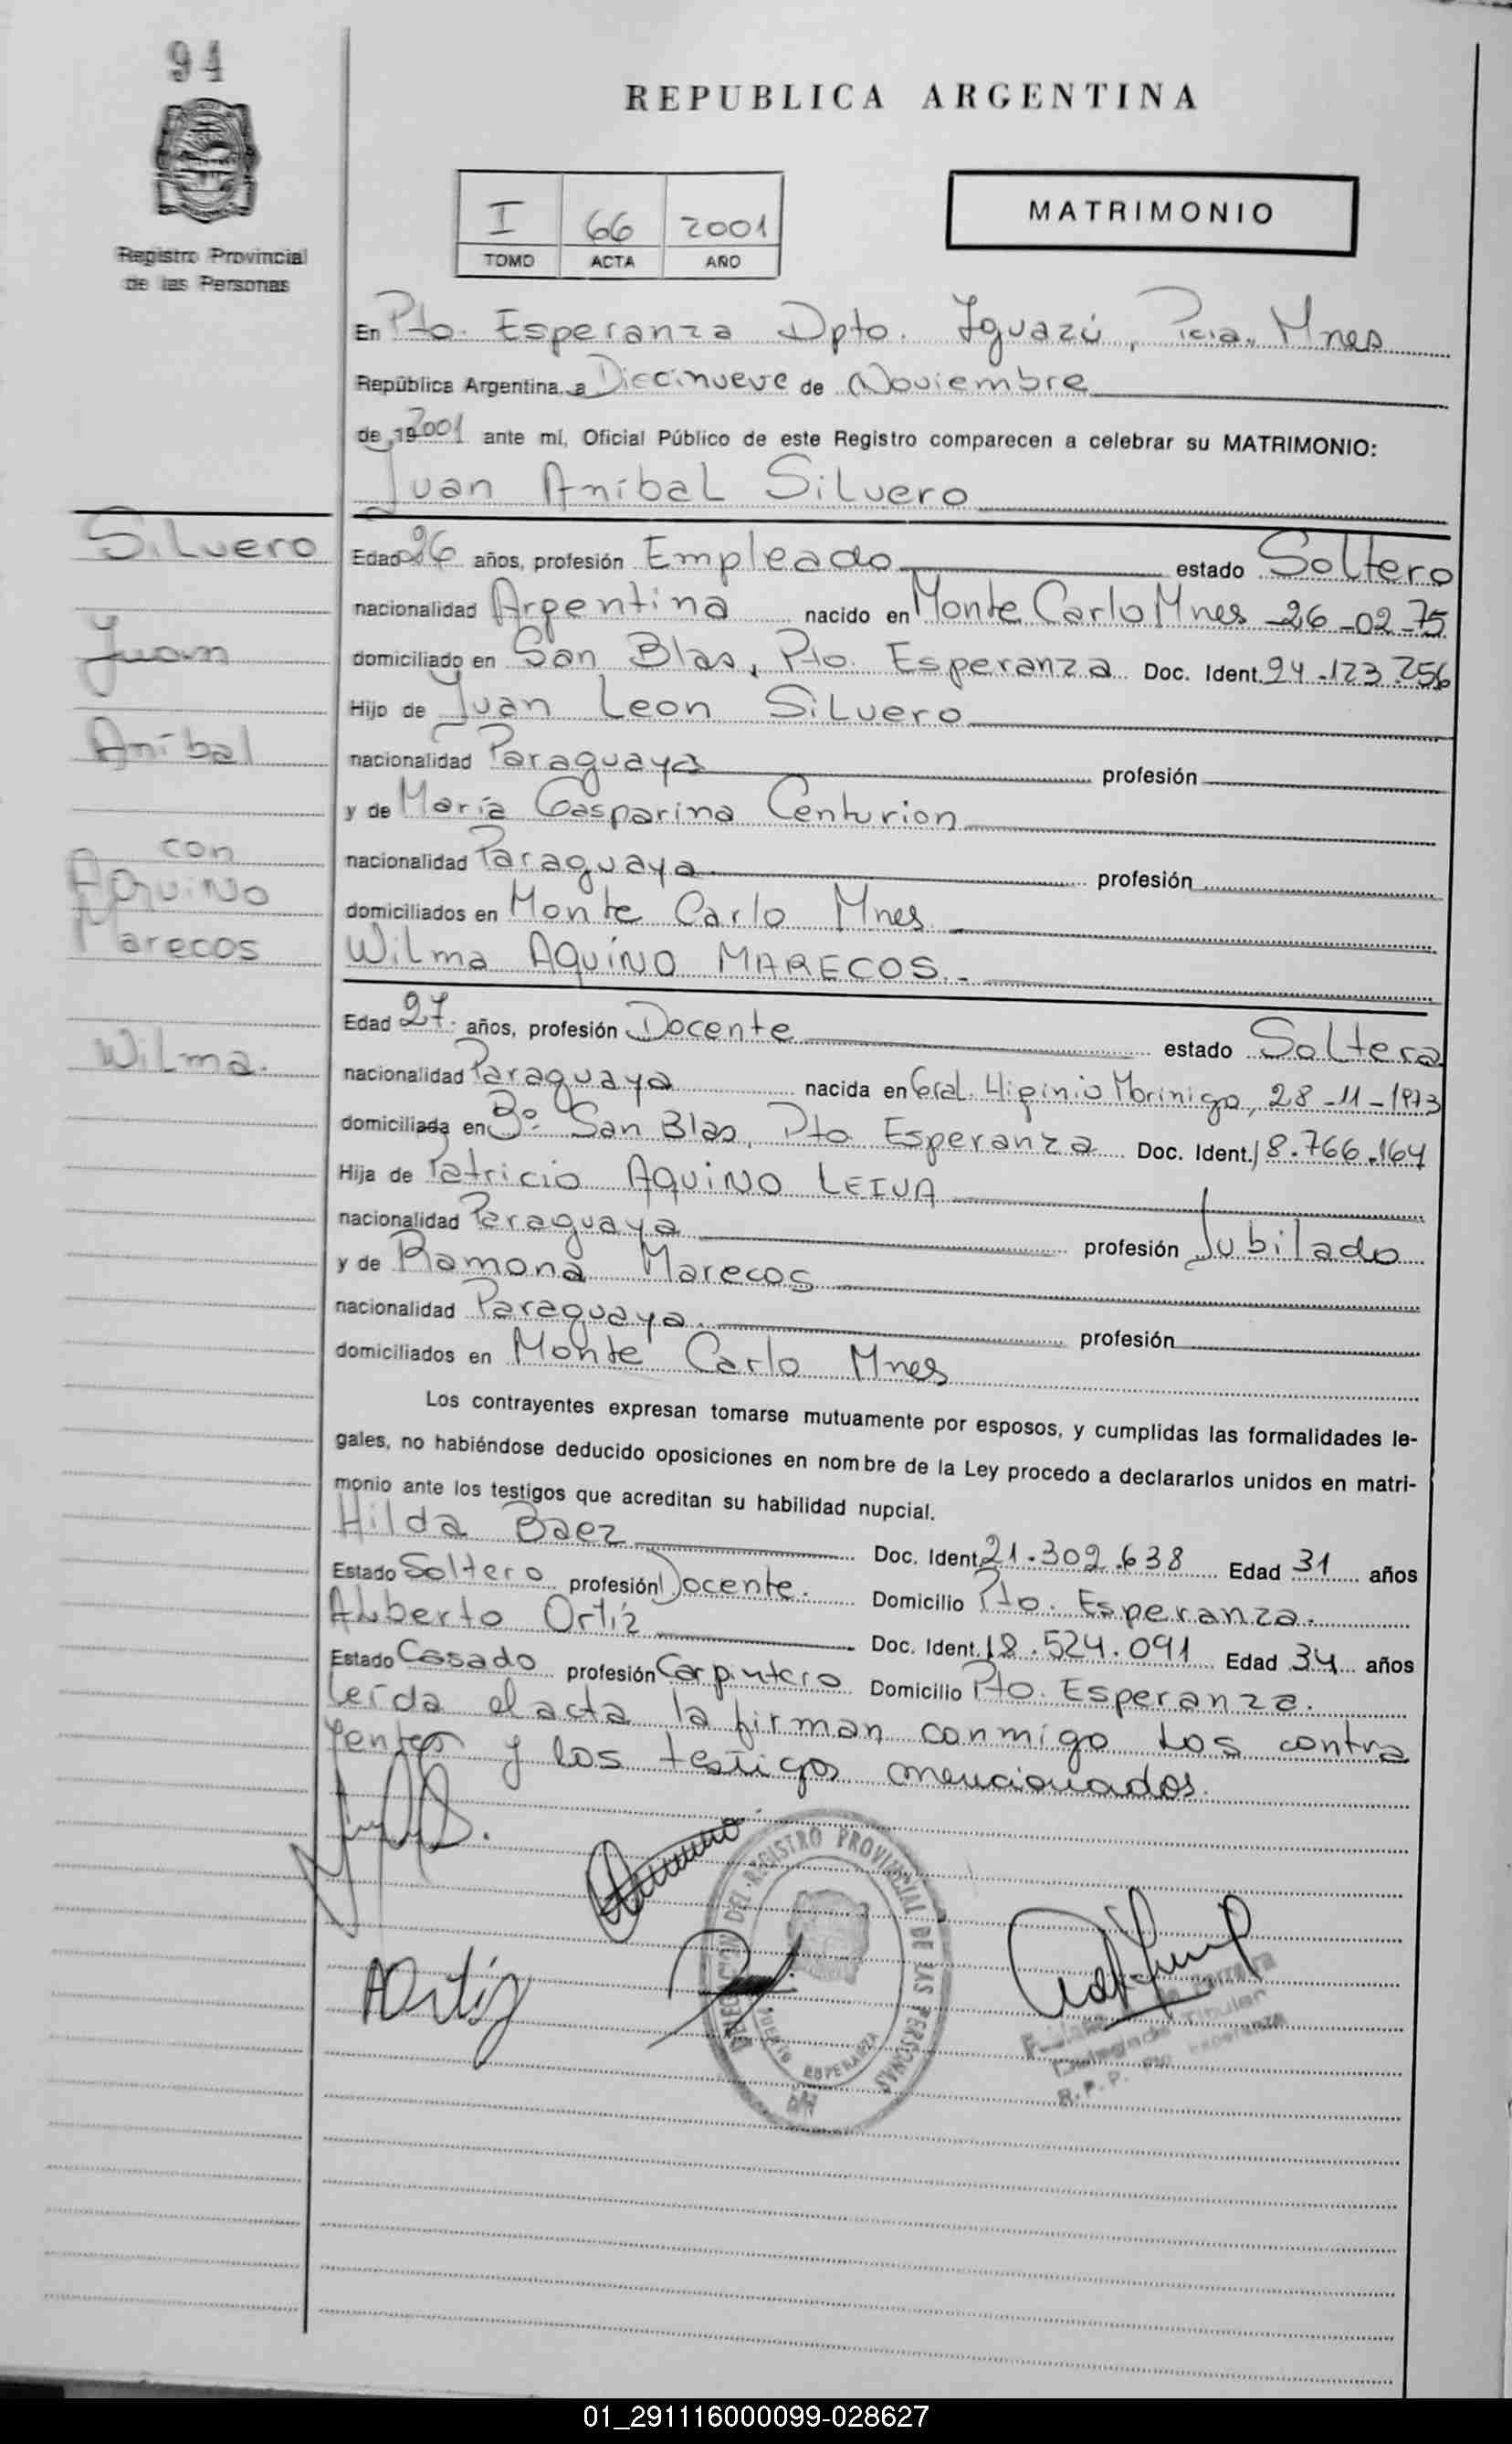 91
REPUBLICA ARGENTINA
Registro Provincial
de las Personas
I 66 2001
TOMO ACTA AÑO
MATRIMONIO
En Pto. Esperanza Dpto. Iguazú, Pcia. Mnes
República Argentina, a Diecinueve de Noviembre
de 192001 ante mí, Oficial Público de este Registro comparecen a celebrar su MATRIMONIO:
Juan Aníbal Silvero
Silvero
Juan
Aníbal
con
Aquino
Marecos
Wilma.
Edad 26 años, profesión Empleado estado Soltero
nacionalidad Argentina nacido en Monte Carlo Mnes -26-02-75
domiciliado en San Blas, Pto. Esperanza Doc. Ident. 24.123.256
Hijo de Juan Leon Silvero
nacionalidad Paraguaya profesión
y de María Gasparina Centurion
nacionalidad Paraguaya profesión
domiciliados en Monte Carlo Mnes
Wilma AQUINO MARECOS.-
Edad 27. años, profesión Docente estado Soltera
nacionalidad Paraguaya nacida en Gral. Higinio Morinigo, 28-11-1973
domiciliada en Bº San Blas, Pto Esperanza Doc. Ident. 18.766.164
Hija de Patricio AQUINO LEIVA
nacionalidad Paraguaya profesión Jubilado
y de Ramona Marecos
nacionalidad Paraguaya. profesión
domiciliados en Monte Carlo Mnes
Los contrayentes expresan tomarse mutuamente por esposos, y cumplidas las formalidades le-
gales, no habiéndose deducido oposiciones en nombre de la Ley procedo a declararlos unidos en matri-
monio ante los testigos que acreditan su habilidad nupcial.
Hilda Baez Doc. Ident. 21.302.638 Edad 31 años
Estado Soltero profesión Docente. Domicilio Pto. Esperanza.
Alberto Ortíz Doc. Ident. 18.524.091 Edad 34 años
Estado Casado profesión Carpintero Domicilio Pto. Esperanza.
Leída el acta la firman conmigo los contra
yentes y los testigos mencionados.
AOrtíz
DIRECCION DEL REGISTRO PROVINCIAL DE LAS PERSONAS
PUERTO ESPERANZA
Delegada Titular
R.P.P. Pto. Esperanza
01_291116000099-028627